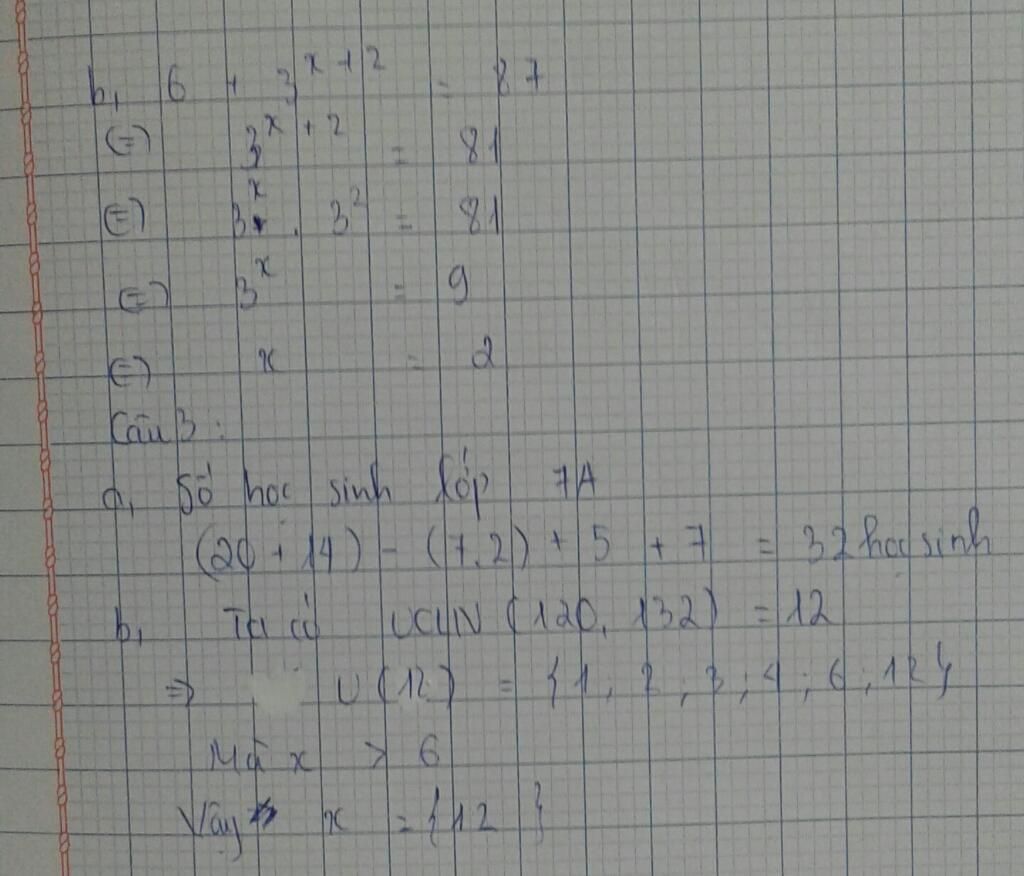 b, 6 + 3^{x+2} = 87
(=) 3^{x+2} = 81
(=) 3^x . 3^2 = 81
(=) 3^x = 9
(=) x = 2
Câu 3:
a, Số học sinh lớp 7A
(20 + 14) - (7.2) + 5 + 7 = 32 học sinh
b, Ta có ƯCLN (120, 132) = 12
=> Ư(12) = {1; 2; 3; 4; 6; 12}
Mà x > 6
Vậy x = {12}